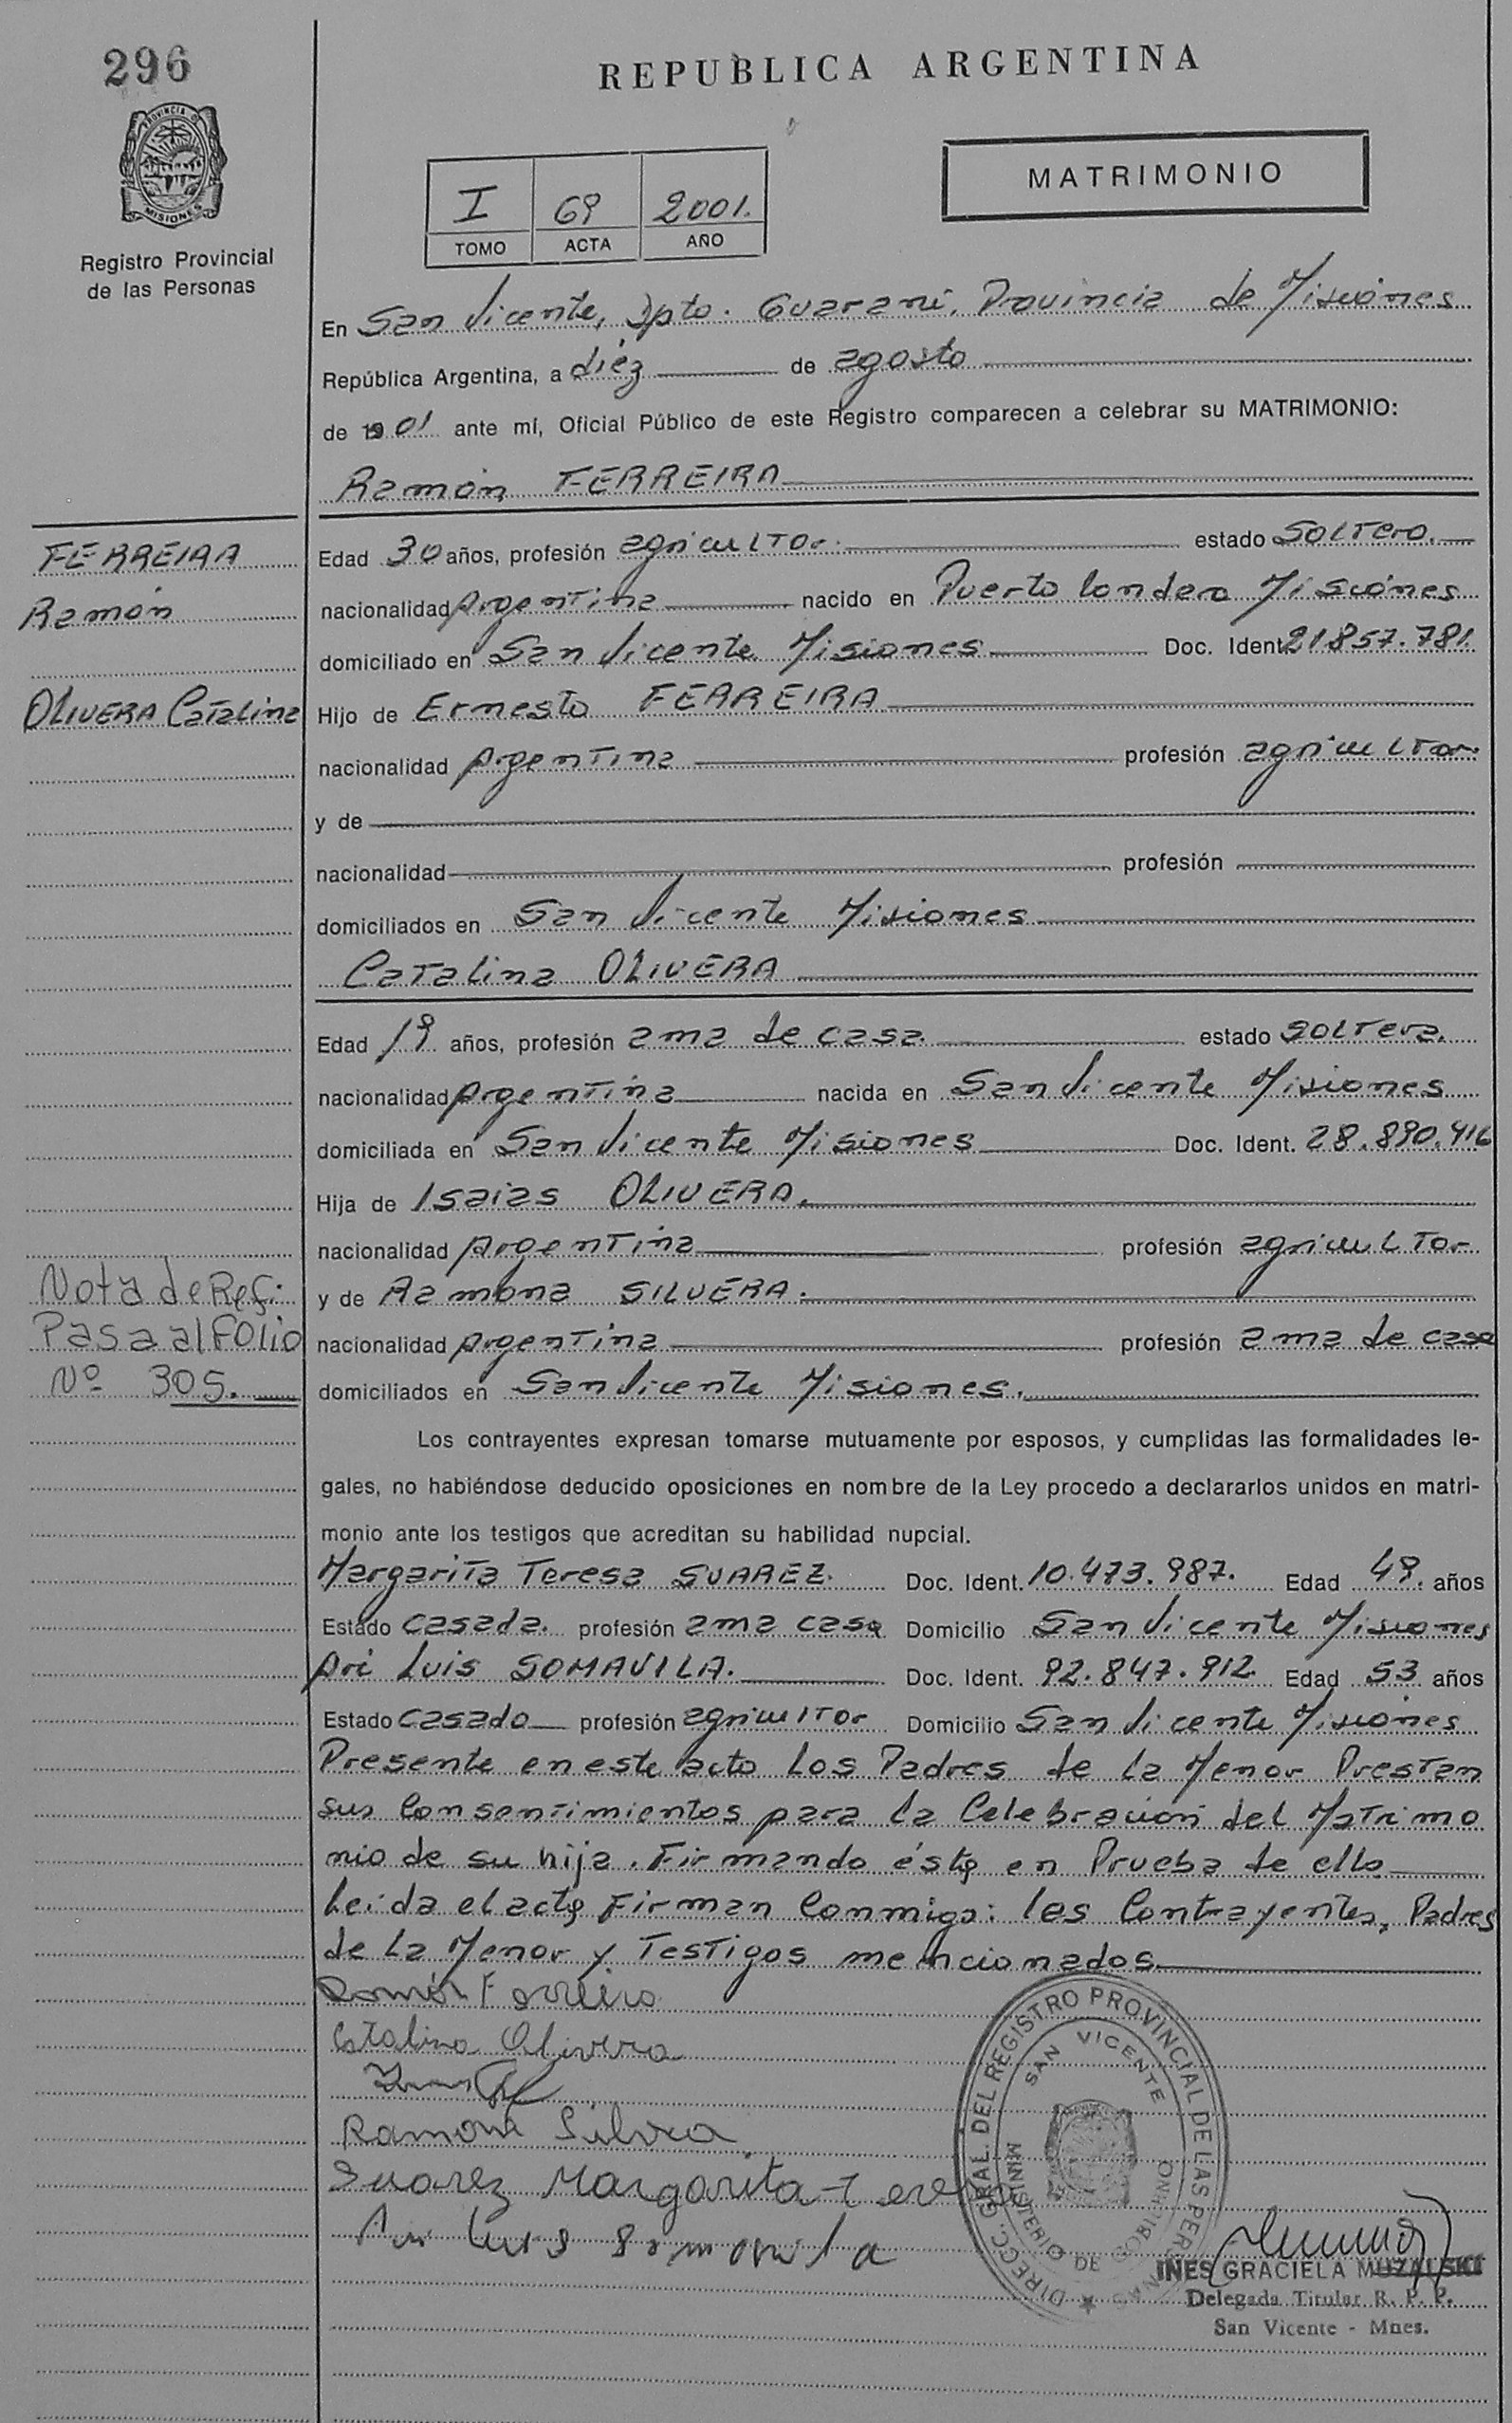 296
REPUBLICA ARGENTINA
PROVINCIA DE
MISIONES
Registro Provincial
de las Personas
I 69 2001.
TOMO ACTA AÑO
MATRIMONIO
En San Vicente, Dpto. Guaraní, Provincia de Misiones
República Argentina, a diez de agosto
de 01 ante mí, Oficial Público de este Registro comparecen a celebrar su MATRIMONIO:
Ramón FERREIRA
FERREIRA
Ramón
OLIVERA Catalina
Edad 30 años, profesión agricultor. estado soltero.
nacionalidad Argentina nacido en Puerto Londero Misiones
domiciliado en San Vicente Misiones Doc. Ident. 21.857.781.
Hijo de Ernesto FERREIRA
nacionalidad Argentina profesión agricultor.
y de
nacionalidad profesión
domiciliados en San Vicente Misiones
Catalina OLIVERA
Edad 19 años, profesión ama de casa. estado soltera.
nacionalidad Argentina nacida en San Vicente Misiones
domiciliada en San Vicente Misiones Doc. Ident. 28.890.416
Hija de Isaias OLIVERA.
nacionalidad Argentina profesión agricultor
y de Ramona SILVERA.
nacionalidad Argentina profesión ama de casa
domiciliados en San Vicente Misiones.
Nota de Ref:
Pasa al Folio
Nº 305.
Los contrayentes expresan tomarse mutuamente por esposos, y cumplidas las formalidades le-
gales, no habiéndose deducido oposiciones en nombre de la Ley procedo a declararlos unidos en matri-
monio ante los testigos que acreditan su habilidad nupcial.
Margarita Teresa SUAREZ. Doc. Ident. 10.473.987. Edad 49. años
Estado casada. profesión ama casa Domicilio San Vicente Misiones
Ari Luis SOMAVILA. Doc. Ident. 92.847.912. Edad 53 años
Estado casado profesión agricultor Domicilio San Vicente Misiones
Presente en este acto Los Padres de la Menor Prestan
sus Consentimientos para la Celebración del Matrimo
nio de su hija. Firmando ésta en Prueba de ello
Leída el acta Firman Conmigo: los Contrayentes, Padres
de la Menor y Testigos mencionados
Ramón Ferreira
Catalina Olivera
Ramona Silvera
Suarez Margarita Teresa
Ari Luis Somavila
DIRECC. GRAL. DEL REGISTRO PROVINCIAL DE LAS PERSONAS
SAN VICENTE
MINISTERIO DE GOBIERNO
INES GRACIELA MUZALSKI
Delegada Titular R. P. P.
San Vicente - Mnes.